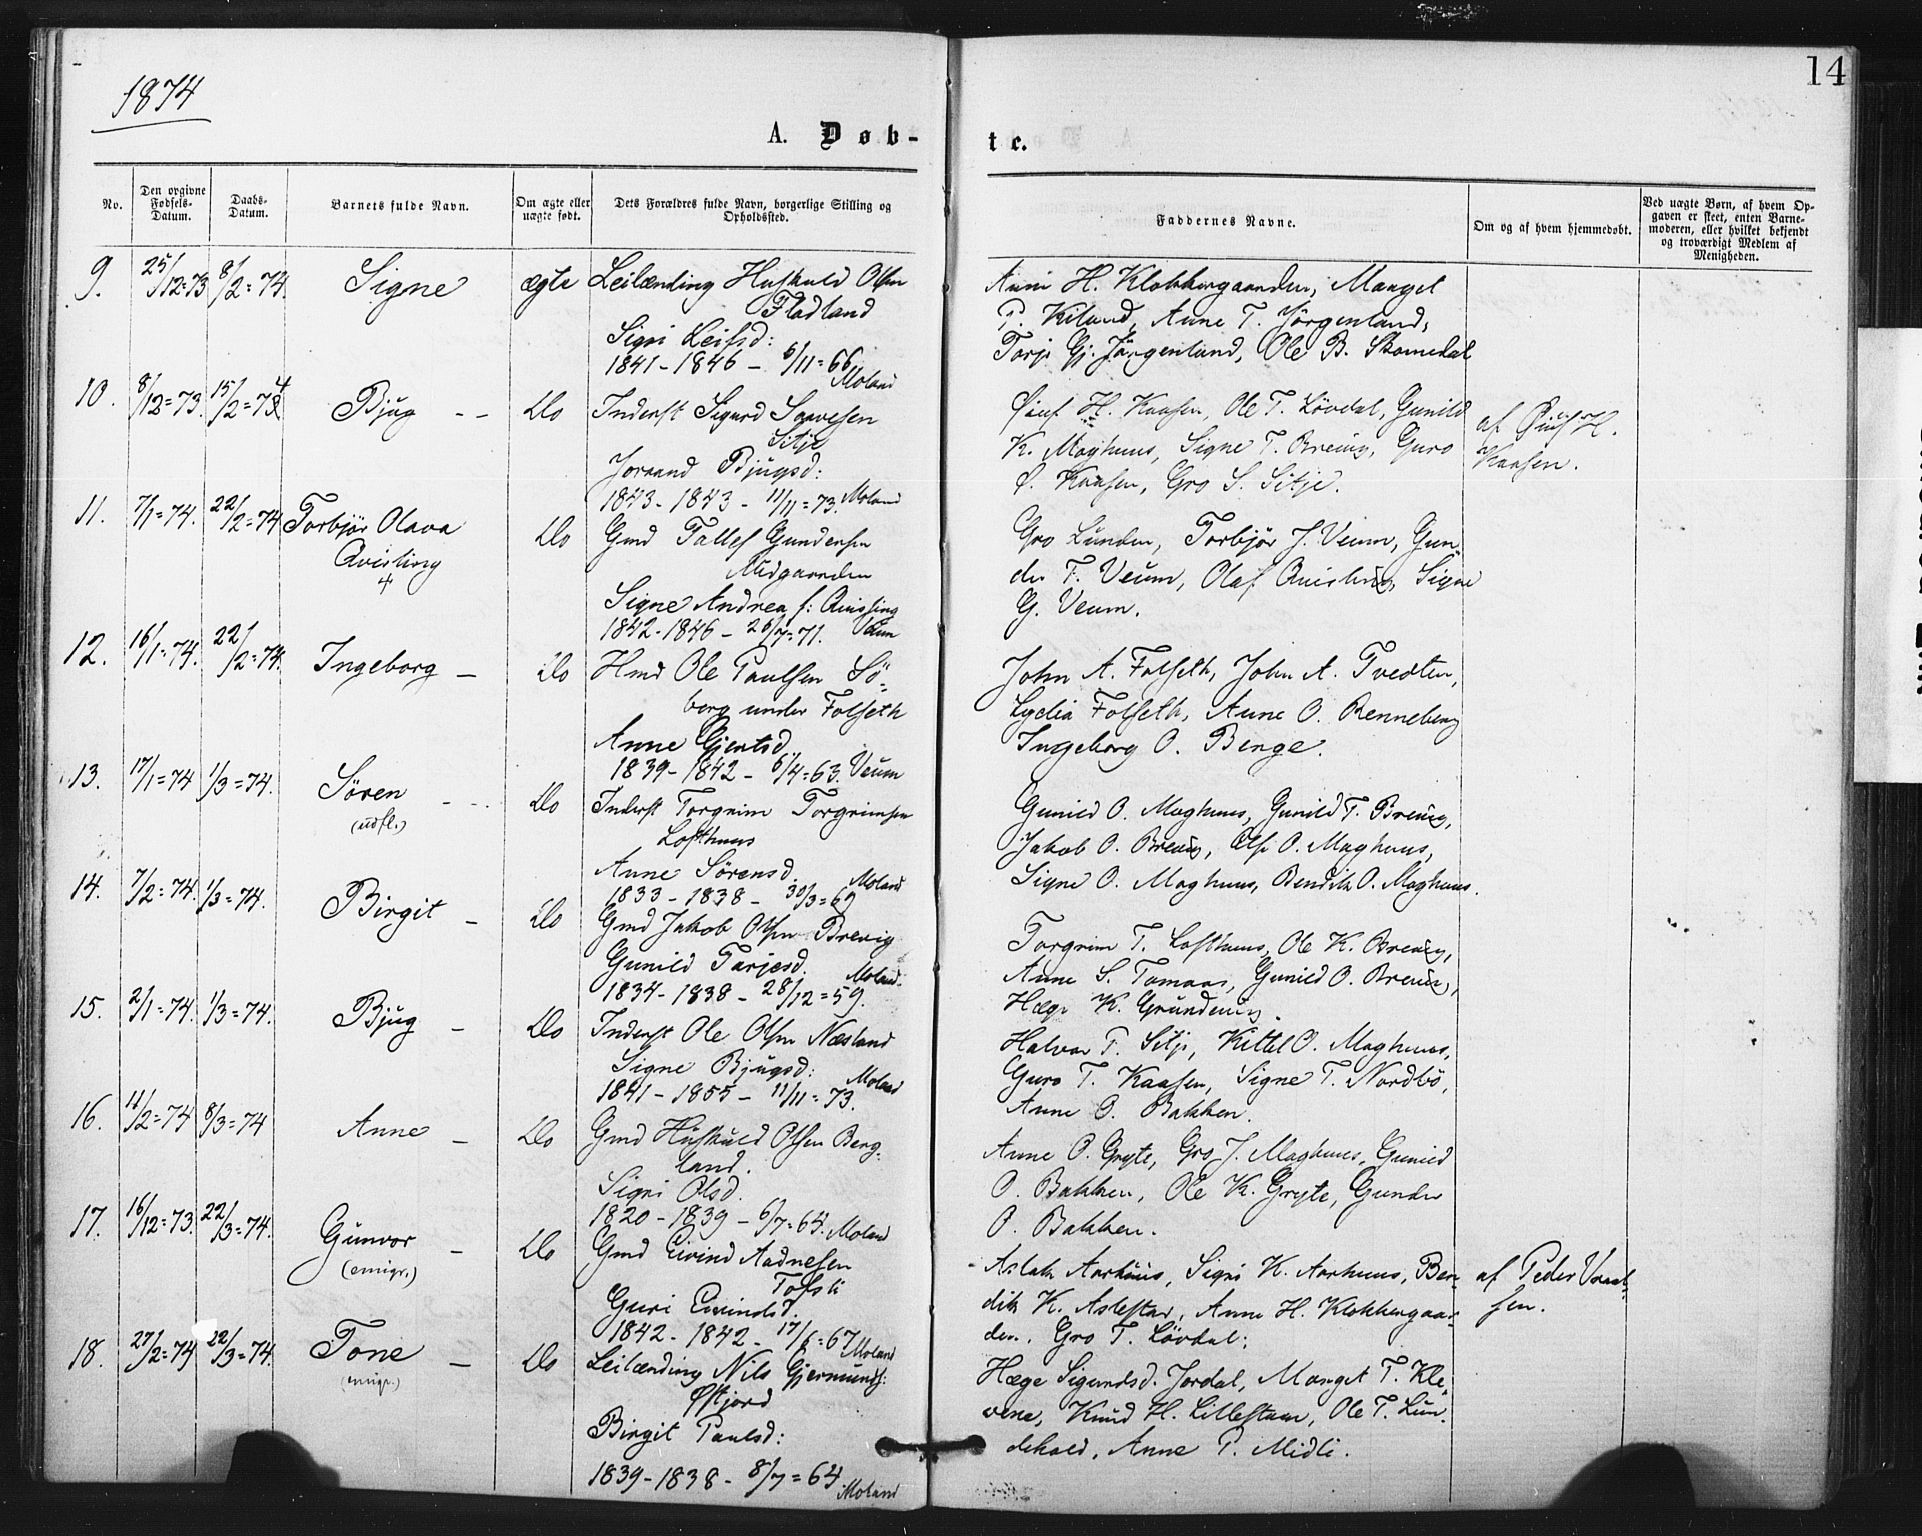 1874
14
A. Døb-
te.
No.
Den opgivne Fødsels-Datum.
Daabs-Datum.
Barnets fulde Navn.
Om ægte eller uægte født.
Dets Forældres fulde Navn, borgerlige Stilling og Opholdssted.
Faddernes Navne.
Om og af hvem hjemmedøbt.
Ved uægte Børn, af hvem Opgaven er skeet, enten Barnemoderen, eller hvilket bekjendt og troværdigt Medlem af Menigheden.
9. 25/12=73 8/2=74. Signe ægte Leilænding Huskuld Olsen
Fladland
Sigri Leifsd:
1841-1846 - 6/11=66
Moland
H. Klokkergaarden, Marget
P. Kiland, Anne T. Jörgenland,
Torje Gj. Jörgenland, Ole B. Skomedal
10. 8/12=73. 15/2=74 Bjug - - Do Inderst Sigurd Saavesen
Sitje
Joraand Bjugsd:
1843-1843 - 11/11=73. Moland
H. Kaasen, Ole T. Lövdal, Gunild
K. Moghuus, Signe T. Breivig, Guro
Ø. Kaasen, Gro S. Sitje.
af H.
Kaasen.
11. 7/1=74. 22/2=74 Torbjør Olava
Qvisling
Do Gmd Tallef Gundersen
Midgaarden
Signe Andrea f: Quisling
1842-1846 - 26/7=71.
Gro Lunden, Torbjør J. Veum, Gun-
der T. Veum, Olaf Quisling, Signe
G. Veum.
12. 16/1=74. 22/2=74. Ingeborg - Do Hmd Ole Paulsen Sö-
berg under Folseth
Anne Gjertsd.
1839-1842 - 6/4=63. Veum
John A. Folseth, John A. Tvedten,
Lydia Folseth, Anne O. Renneberg
Ingeborg O. Berge.
13. 17/1=74 1/3=74. Søren - - Do Inderst Torgrim Torgrimsen
(udfl.)
Lofthuus
Anne Sørensd.
1833-1838 - 30/3=69
Moland
Gunild O. Moghuus, Gunild T. Breivig,
Jakob O. Breivig, O. Moghuus,
Signe O. Moghuus, Bendik O. Moghuus.
14. 7/2=74. 1/3=74. Birgit - Do Gmd Jakob Olsen Brevig
Gunild Tarjesd.
1834-1838 - 28/12=59.
Moland.
Torgrim T. Lofthuus, Ole K. Breivig,
Anne S. Tomaas, Gunild O. Breivig,
Hæge K. Grundevig.
15. 2/1=74. 1/3=74. Bjug - Do Inderst Ole Olsen Næsland
Signe Bjugsd:
1841-1855 - 11/11=73.
Moland
Halvor T. Sitje, Kittel O. Moghuus,
Guro T. Kaasen, Signe T. Nordbö,
Anne O. Bakken.
16. 11/2=74 8/3=74 Anne - Do Gmd Huskuld Olsen Berg-
land.
Sigri Olsd.
1820-1839 - 6/7=64. Moland
Anne O. Gryte, Gro J. Moghuus, Gunild
O. Bakken, Ole K. Gryte, Gunder
O. Bakken.
17. 16/12=73. 22/3=74. Gunvor - Do Gmd Eivind Aadnesen
(emigr.)
Tofsli
Guri Eivindsd.
1842-1842 - 17/6=67 Moland
Aslak Aarhuus, Sigri K. Aarhuus, Ben-
dik K. Aslestad, Anne H. Klokkergaar-
den. Gro T. Lövdal:
af Peder Vraal-
sen.
18. 27/2=74 22/3=74. Tone - Do Leilænding Nils Gjermunds:
(emigr.)
Øfjord
Birgit Paulsd:
1839-1838 - 8/7=64
Moland
Hæge Sigurdsd. Jordal, Marget T. Kle-
vene, Knud H. Lillestam, Ole T. Lun-
dekald, Anne P. Midli.